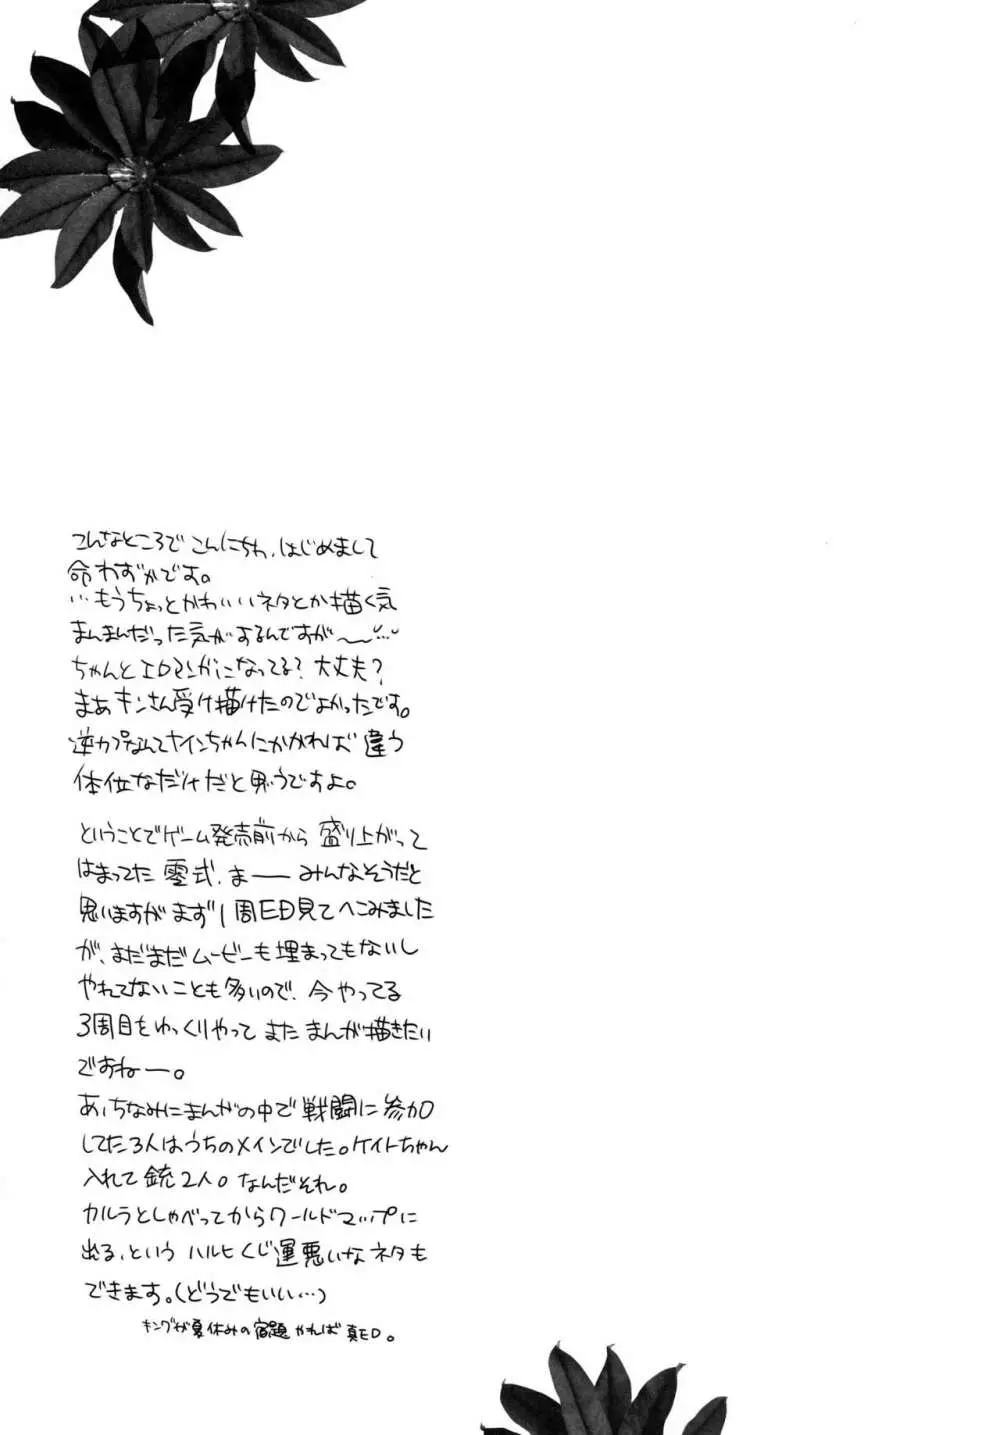 こんなところで こんにちわ、はじめまして
命わずかです。
…もうちょっとかわいいネタとか描く気
まんまんだった気がするんですが〜〜…
ちゃんとエロマンガになってる？大丈夫？
まあキンさん受け描けたのでよかったです。
逆カプなんてナインちゃんにかかれば違う
体位なだけだと思うですよ。
ということでゲーム発売前から盛り上がって
はまってた零式、まーーみんなそうだと
思いますがまず1周ED見てへこみました
が、まだまだムービーも埋まってもないし
やれてないことも多いので、今やってる
3周目をゆっくりやって また まんが描きたい
ですねー。
あ、ちなみにまんがの中で戦闘に参加
してた3人はうちのメインでした。ケイトちゃん
入れて銃2人。なんだそれ。
カルラとしゃべってからワールドマップに
出る、という ハルヒくじ運悪いなネタも
できます。(どうでもいい…)
キングが夏休みの宿題やれば真ED。